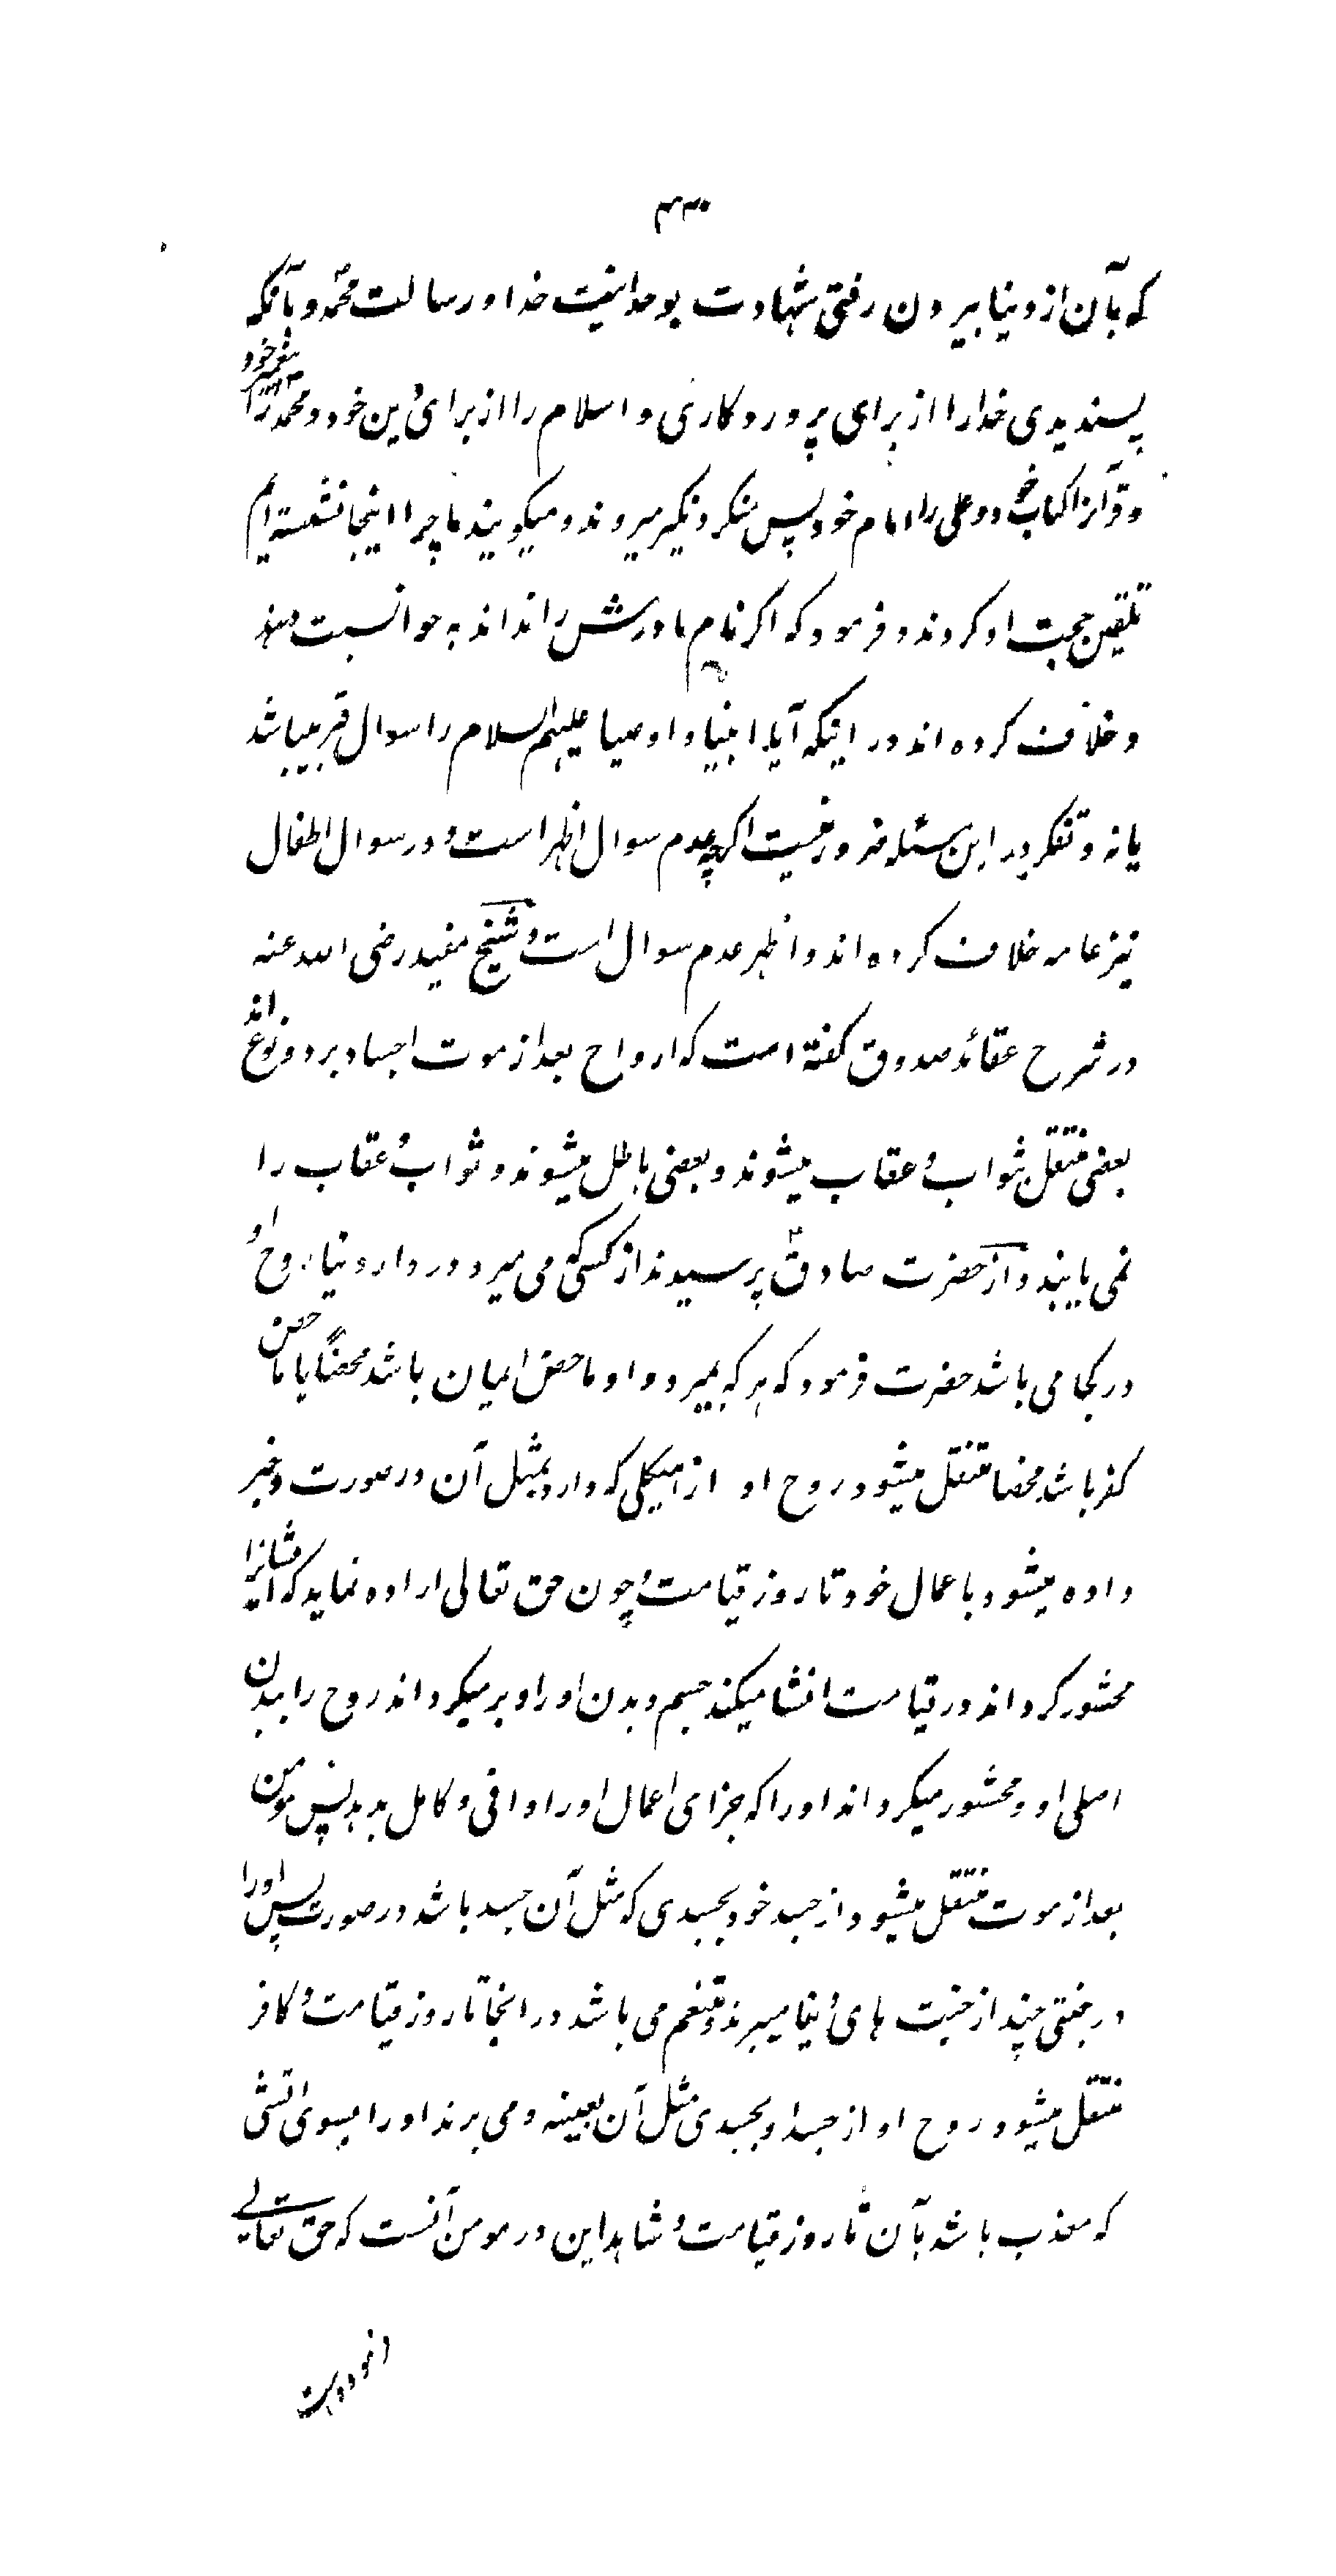 ۴۳۰
که بآن از دنیا بیرون رفتی شهادت بوحدانیت خدا و رسالت محمد و بآنکه
پسندیدی خدا را از برای پروردگاری و اسلام را از برای دین خود و محمد را پیغمبر خود
و قرآنرا کتاب خود و علی را امام خود پس منکر و نکیر میروند و میگویند ما چرا اینجا نشسته ایم
تلقین حجت او کردند و فرمود که اگر نام مادرش را نداند به حوا نسبت دهند
و خلاف کرده اند در اینکه آیا انبیا و اوصیا علیهم السلام را سوال قبر میباشد
یا نه و تفکر در این مسئله ضرور نیست اگرچه عدم سوال اظهر است و در سوال اطفال
نیز عامه خلاف کرده اند و اظهر عدم سوال است و شیخ مفید رضی الله عنه
در شرح عقائد صدوق گفته است که ارواح بعد از موت اجساد بر دو نوع اند
بعضی منتقل بثواب و عقاب میشوند و بعضی باطل میشوند و ثواب و عقاب را
نمی یابند و از حضرت صادق پرسیدند از کسی که می میرد در دار دنیا روح او
در کجا می باشد حضرت فرمود که هر که بمیرد و او ماحض ایمان باشد محضاً یا ماحض
کفر باشد محضا منتقل میشود روح او از هیکلی که دارد بمثل آن در صورت و جزا
داده میشود باعمال خود تا روز قیامت و چون حق تعالی اراده نماید که ایشانرا
محشور گرداند در قیامت انشا میکند جسم و بدن او را و بر میگرداند روح را ببدن
اصلی او و محشور میگرداند او را که جزای اعمال او را وافی و کامل بدهد پس مومن
بعد از موت منتقل میشود از جسد خود بجسدی که مثل آن جسد باشد در صورت پس او را
در جنتی چند از جنت های دنیا میبرند و متنعم می باشد در انجا تا روز قیامت و کافر
منتقل میشود روح او از جسد او بجسدی مثل آن بعینه و می برند او را بسوی آتشی
که معذب باشد بآن تا روز قیامت و شاهد این در مومن آنست که حق تعالی